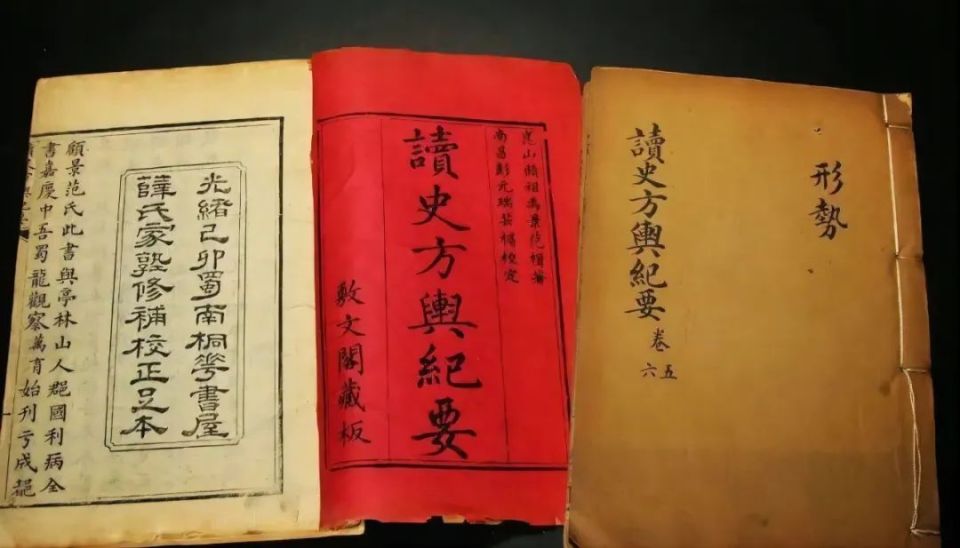 形勢
讀史方輿紀要 卷
五六
崑山顧祖禹景范輯著
南昌彭元瑞芸楣校定
讀史方輿紀要
敷文閣藏板
光緒己卯蜀南桐華書屋
薛氏家塾修補校正足本
顧景范氏此書與亭林山人郡國利病全
書嘉慶中吾蜀龍觀察萬育始刊亏成都